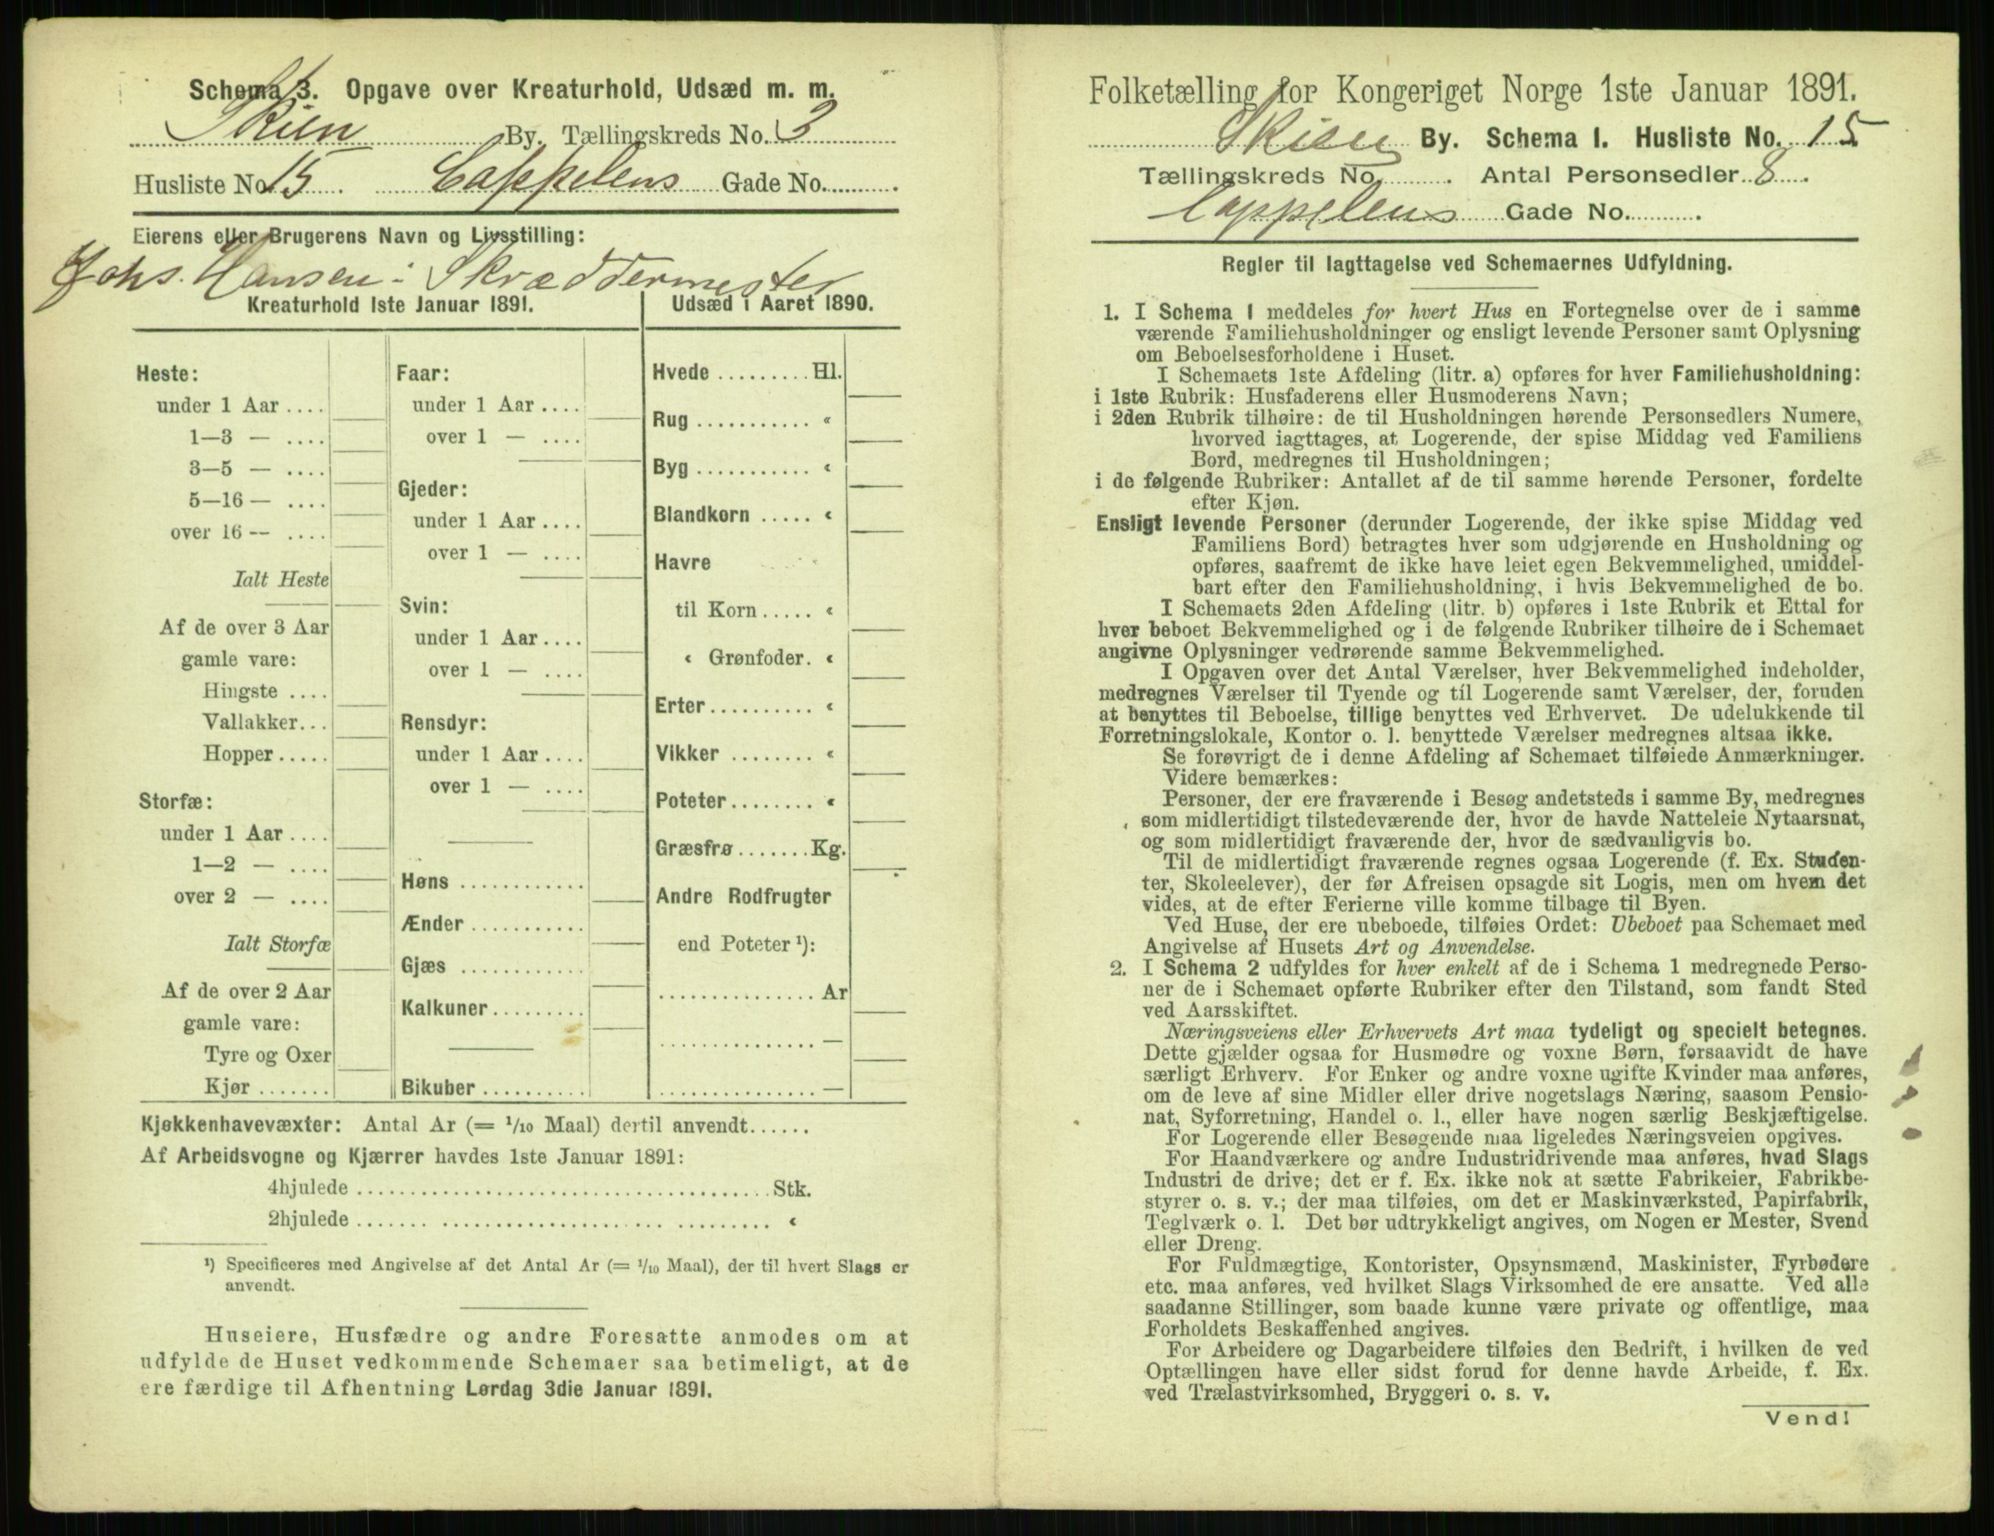 Schema 3. Opgave over Kreaturhold, Udsæd m. m.
Skien By. Tællingskreds No. 3
Husliste No. 15. Cappelens Gade No. .
Eierens eller Brugerens Navn og Livsstilling:
Johs. Hansen: Skræddermester
Kreaturhold 1ste Januar 1891.
Heste:
under 1 Aar ....
1—3 — ....
3—5 — ....
5—16 — ....
over 16 — ....
Ialt Heste
Af de over 3 Aar
gamle vare:
Hingste ....
Vallakker...
Hopper.....
Storfæ:
under 1 Aar ....
1—2 — ....
over 2 — ....
Ialt Storfæ
Af de over 2 Aar
gamle vare:
Tyre og Oxer
Kjør .......
Faar:
under 1 Aar ....
over 1 — ....
Gjeder:
under 1 Aar ....
over 1 — ....
Svin:
under 1 Aar ....
over 1 — ....
Rensdyr:
under 1 Aar ....
over 1 — ....
Høns ............
Ænder ...........
Gjæs ............
Kalkuner.........
Bikuber ..........
Udsæd i Aaret 1890.
Hvede .........Hl.
Rug ........... «
Byg ........... «
Blandkorn ..... «
Havre
til Korn ..... «
« Grønfoder. «
Erter.......... «
Vikker ........ «
Poteter........ «
Græsfrø.......Kg.
Andre Rodfrugter
end Poteter ¹):
............... Ar
............... —
............... —
Kjøkkenhavevæxter: Antal Ar (= 1/10 Maal) dertil anvendt......
Af Arbeidsvogne og Kjærrer havdes 1ste Januar 1891:
4hjulede ....................................... Stk.
2hjulede ....................................... «
¹) Specificeres med Angivelse af det Antal Ar (= 1/10 Maal), der til hvert Slags er
anvendt.
Huseiere, Husfædre og andre Foresatte anmodes om at
udfylde de Huset vedkommende Schemaer saa betimeligt, at de
ere færdige til Afhentning Lørdag 3die Januar 1891.
Folketælling for Kongeriget Norge 1ste Januar 1891.
Skien By. Schema I. Husliste No. 15
Tællingskreds No. . Antal Personsedler 8.
Cappelens Gade No. .
Regler til Iagttagelse ved Schemaernes Udfyldning.
1. I Schema 1 meddeles for hvert Hus en Fortegnelse over de i samme
værende Familiehusholdninger og ensligt levende Personer samt Oplysning
om Beboelsesforholdene i Huset.
I Schemaets 1ste Afdeling (litr. a) opføres for hver Familiehusholdning:
i 1ste Rubrik: Husfaderens eller Husmoderens Navn;
i 2den Rubrik tilhøire: de til Husholdningen hørende Personsedlers Numere,
hvorved iagttages, at Logerende, der spise Middag ved Familiens
Bord, medregnes til Husholdningen;
i de følgende Rubriker: Antallet af de til samme hørende Personer, fordelte
efter Kjøn.
Ensligt levende Personer (derunder Logerende, der ikke spise Middag ved
Familiens Bord) betragtes hver som udgjørende en Husholdning og
opføres, saafremt de ikke have leiet egen Bekvemmelighed, umiddel-
bart efter den Familiehusholdning, i hvis Bekvemmelighed de bo.
I Schemaets 2den Afdeling (litr. b) opføres i 1ste Rubrik et Ettal for
hver beboet Bekvemmelighed og i de følgende Rubriker tilhøire de i Schemaet
angivne Oplysninger vedrørende samme Bekvemmelighed.
I Opgaven over det Antal Værelser, hver Bekvemmelighed indeholder,
medregnes Værelser til Tyende og til Logerende samt Værelser, der, foruden
at benyttes til Beboelse, tillige benyttes ved Erhvervet. De udelukkende til
Forretningslokale, Kontor o. l. benyttede Værelser medregnes altsaa ikke.
Se forøvrigt de i denne Afdeling af Schemaet tilføiede Anmærkninger.
Videre bemærkes:
Personer, der ere fraværende i Besøg andetsteds i samme By, medregnes
som midlertidigt tilstedeværende der, hvor de havde Natteleie Nytaarsnat,
og som midlertidigt fraværende der, hvor de sædvanligvis bo.
Til de midlertidigt fraværende regnes ogsaa Logerende (f. Ex. Studen-
ter, Skoleelever), der før Afreisen opsagde sit Logis, men om hvem det
vides, at de efter Ferierne ville komme tilbage til Byen.
Ved Huse, der ere ubeboede, tilføies Ordet: Ubeboet paa Schemaet med
Angivelse af Husets Art og Anvendelse.
2. I Schema 2 udfyldes for hver enkelt af de i Schema 1 medregnede Perso-
ner de i Schemaet opførte Rubriker efter den Tilstand, som fandt Sted
ved Aarsskiftet.
Næringsveiens eller Erhvervets Art maa tydeligt og specielt betegnes.
Dette gjælder ogsaa for Husmødre og voxne Børn, forsaavidt de have
særligt Erhverv. For Enker og andre voxne ugifte Kvinder maa anføres,
om de leve af sine Midler eller drive nogetslags Næring, saasom Pensio-
nat, Syforretning, Handel o. l., eller have nogen særlig Beskjæftigelse.
For Logerende eller Besøgende maa ligeledes Næringsveien opgives.
For Haandværkere og andre Industridrivende maa anføres, hvad Slags
Industri de drive; det er f. Ex. ikke nok at sætte Fabrikeier, Fabrikbe-
styrer o. s. v.; der maa tilføies, om det er Maskinværksted, Papirfabrik,
Teglværk o. l. Det bør udtrykkeligt angives, om Nogen er Mester, Svend
eller Dreng.
For Fuldmægtige, Kontorister, Opsynsmænd, Maskinister, Fyrbødere
etc. maa anføres, ved hvilket Slags Virksomhed de ere ansatte. Ved alle
saadanne Stillinger, som baade kunne være private og offentlige, maa
Forholdets Beskaffenhed angives.
For Arbeidere og Dagarbeidere tilføies den Bedrift, i hvilken de ved
Optællingen have eller sidst forud for denne havde Arbeide, f. Ex.
ved Trælastvirksomhed, Bryggeri o. s. v.
Vend!